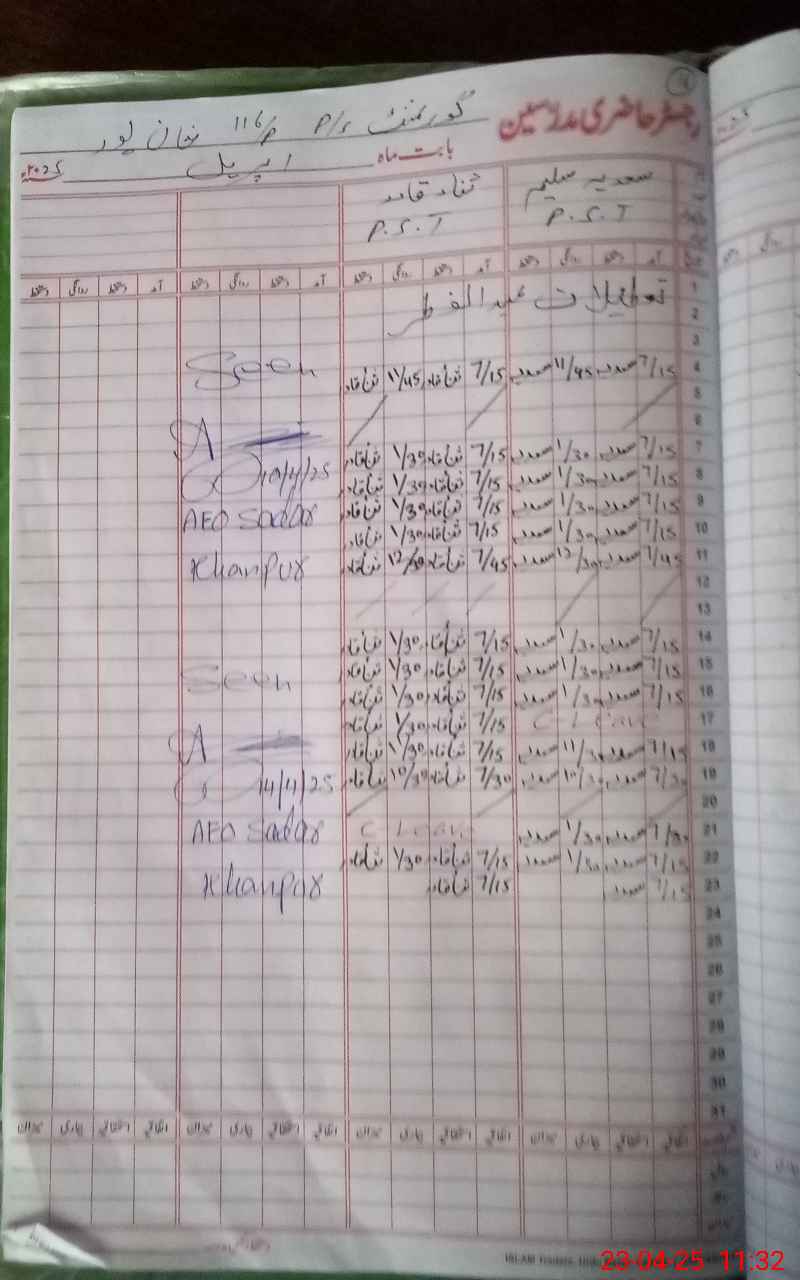 رجسٹر حاضری مدرسین
گورنمنٹ P/S 116/P خان پور
بابت ماہ اپریل ۲۰۲۵ء
سعدیہ سلیم ثناء قادر
P.S.T P.S.T
آمد روانگی آمد روانگی آمد روانگی آمد روانگی
1 تعطیلات عید الفطر
2
3
4 7/15 سعدیہ 11/45 سعدیہ 7/15 ثناء قادر 11/45 ثناء قادر Seen
5
6
7 7/15 سعدیہ 1/30 سعدیہ 7/15 ثناء قادر 1/30 ثناء قادر
8 7/15 سعدیہ 1/30 سعدیہ 7/15 ثناء قادر 1/30 ثناء قادر 10/4/25
9 7/15 سعدیہ 1/30 سعدیہ 7/15 ثناء قادر 1/30 ثناء قادر AEO Sadar
10 7/15 سعدیہ 1/30 سعدیہ 7/15 ثناء قادر 1/30 ثناء قادر
11 7/45 سعدیہ 12/30 سعدیہ 7/45 ثناء قادر 12/30 ثناء قادر Khanpur
12
13
14 7/15 سعدیہ 1/30 سعدیہ 7/15 ثناء قادر 1/30 ثناء قادر
15 7/15 سعدیہ 1/30 سعدیہ 7/15 ثناء قادر 1/30 ثناء قادر Seen
16 7/15 سعدیہ 1/30 سعدیہ 7/15 ثناء قادر 1/30 ثناء قادر
17 C Leave 7/15 ثناء قادر 1/30 ثناء قادر
18 7/15 سعدیہ 11/30 سعدیہ 7/15 ثناء قادر 11/30 ثناء قادر
19 7/30 سعدیہ 10/30 سعدیہ 7/30 ثناء قادر 10/30 ثناء قادر 14/4/25
20
21 7/30 سعدیہ 1/30 سعدیہ C Leave AEO Sadar
22 7/15 سعدیہ 1/30 سعدیہ 7/15 ثناء قادر 1/30 ثناء قادر
23 7/15 سعدیہ 7/15 ثناء قادر Khanpur
24
25
26
27
28
29
30
31
اتفاقیہ استحقاقیہ بیماری میزان اتفاقیہ استحقاقیہ بیماری میزان اتفاقیہ استحقاقیہ بیماری میزان اتفاقیہ استحقاقیہ بیماری میزان
23-04-25 11:32